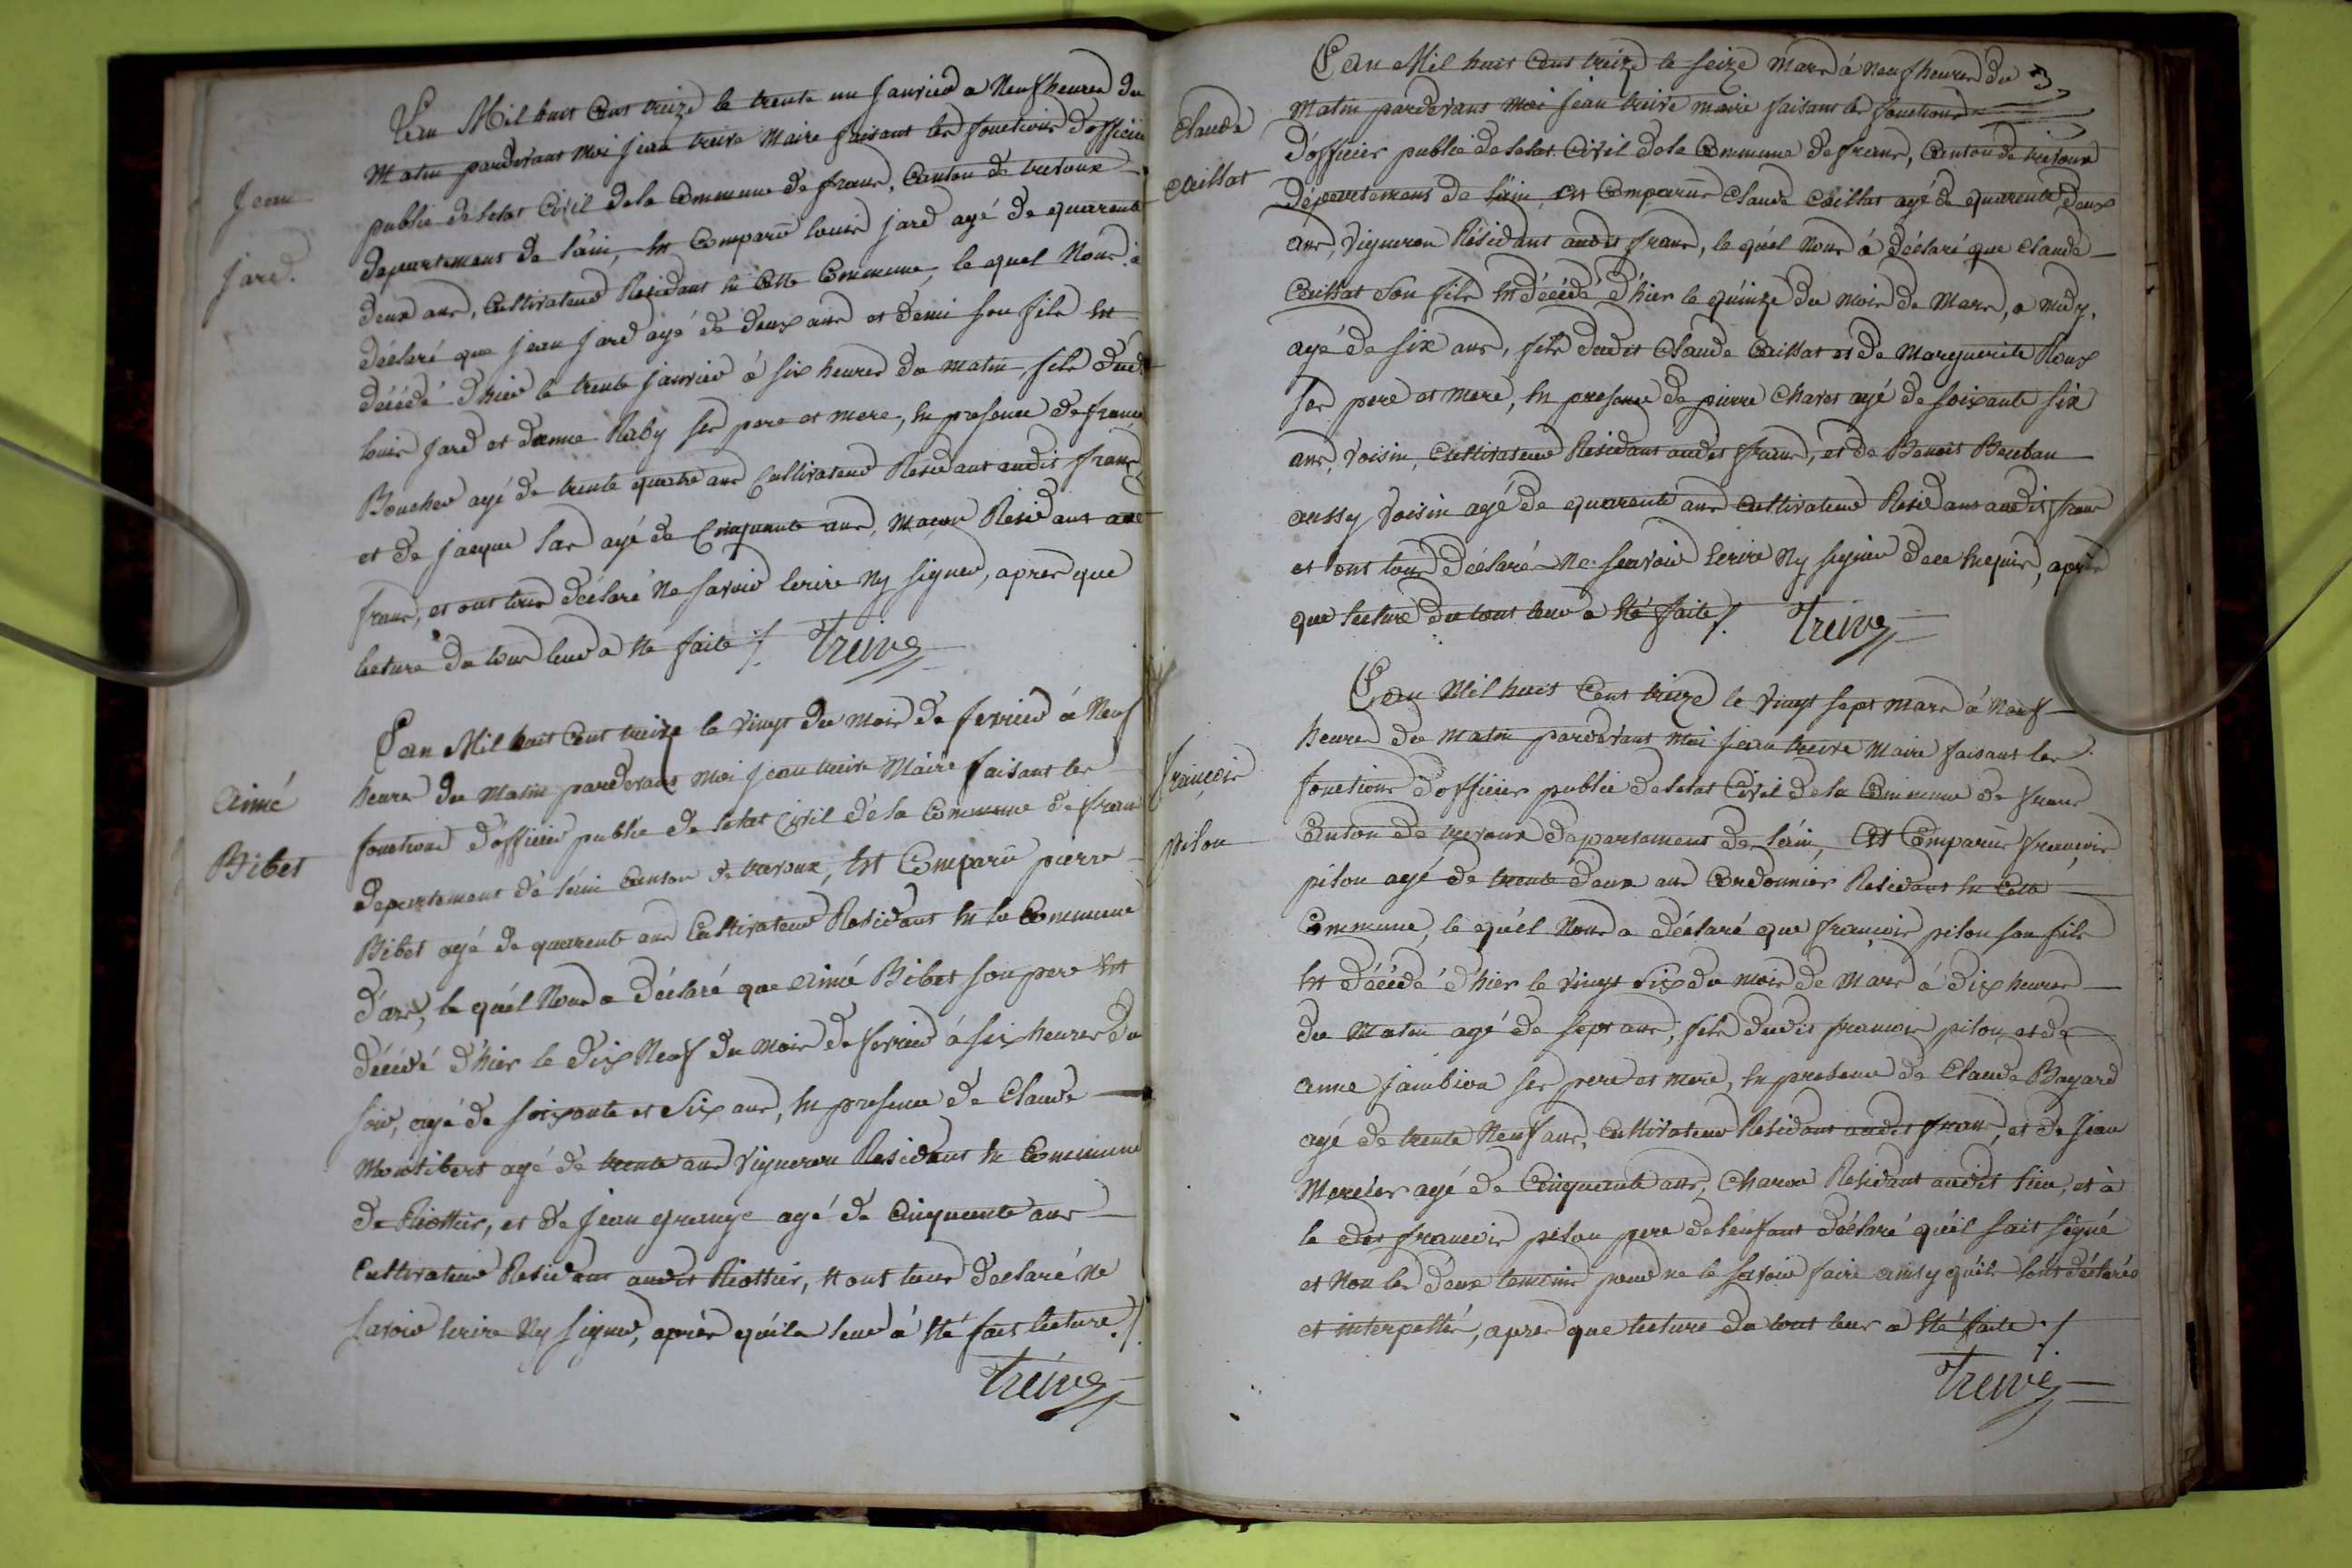 Jean
Jard.
L'an Mil huit Cent treize le trente un Janvier a Neuf heures du
Matin pardevant Moi Jean treive Maire faisant les fonctions d'officier
public de letat Civil dela Commune de frans, Canton de trevoux
departement de l'ain, Est Comparû louis jard agé de quarente
deux ans, Cultivateur Residant En Cette Commune, le quel Nous à
déclaré que jean jard agé de deux ans et demi son fils Est
décédé d'hier le trente janvier à six heures du matin, fils dud.
louis jard et danne Raby ses pere et mere, En presence de francois
Boucher agé de trente quatre ans Cultivateur Résidant audit frans
et de jacque las agé de Cinquante ans, Maçon Residant aud
frans, et ont tous déclaré Ne savoir Ecrire Ny signer, apres que
lecture du tous leur a Eté faite ./. Treive
Aimé
Bibet
L'an Mil huit Cent treize le vingt du mois de fevrier à Neuf
heures du Matin pardevant Moi jean treive Maire faisant les
fonctions d'officier public de letat Civil déla Commune de frans
departement dé l'ain Canton de trevoux, Est Comparû pierre
Bibet agé de quarente ans Cultivateur Residant En la Commune
d'ars, le quél Nous a déclaré que aimé Bibet son pere Est
décédé d'hier le dix Neuf du mois de fevrier à six heures du
soir, agé de soixante et six ans, En presence de Claude
Montibert agé de trente ans Vigneron Residant En Commune
de Riottier, et de jean grange agé de Cinquante ans
Cultivateur Residant audit Riottier, Et ont tous déclaré Ne
savoir Ecrire Ny signer, après qu'ila leur à Eté fait lecture ./.
Treive
3
Claude
Caillat
L'an Mil huit Cent treize le seize Mars à Neuf heures du
Matin pardevant Moi jean treive maire faisant les fonctions
d'officier public de letat Civil dela Commune de frans, Canton de trevoux
département de l'ain, Est Comparûe Claude Caillat agé de quarente deux
ans, Vigneron Résidant audit frans, le quél Nous à déclaré que Claude
Caillat Son fils Est décédé d'hier le quinze du mois de Mars, a midy,
agé de six ans, fils dudit Claude Caillat et de Marguerite Roux
ses pere et mere, En presence de pierre Chavet agé de soixante six
ans, Voisin, Cultivateur Residant audit frans, et de Benoit Bourban
aussy Voisin agé de quarente ans Cultivateur Residant audit frans
et ont tous déclaré Ne scavoir Ecrire Ny signer dece Enquis, après
que lecture du tout leur a Eté faite ./. Treive
françois
piton
L'an Mil huit Cent treize le vingt sept mars à Neuf
heures du Matin pardevant Moi jean treive Maire faisant les
fonctions d'officier public deletat Civil dela Commune de frans
Canton de trevoux departement de l'ain, Est Comparûe françois
piton agé de trente deux ans Cordonnier Residant En Cette
Commune, le quél Nous a déclaré que françois piton son fils
Est décédé d'hier le vingt six du mois de Mars à dix heures
du Matin agé de sept ans, fils dudit francois piton et de
anne jambion ses pere et mere, En presence de Claude Bayard
agé de trente Neuf ans, Cultivateur Residant audit frans, et de jean
Mercier agé de Cinquante ans, Charon Residant audit lieu, et à
le dit francois piton pere de l'enfant déclaré qu'il sait signé
et Non les deux temoins pour ne le savoir faire ainsy qu'ils l'ont déclarés
et interpellés, apres que lecture du tout leur a Eté faite ./.
Treive